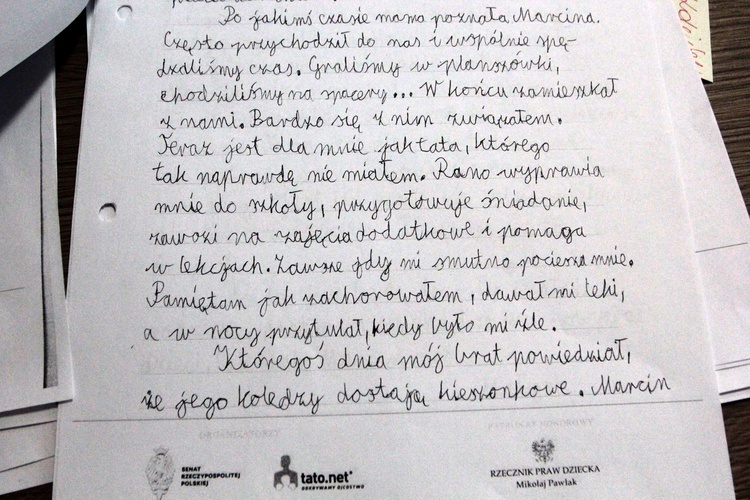 Po jakimś czasie mama poznała Marcina.
Często przychodził do nas i wspólnie spę-
dzaliśmy czas. Graliśmy w planszówki,
chodziliśmy na spacery... W końcu zamieszkał
z nami. Bardzo się z nim związałem.
Teraz jest dla mnie jak tata, którego
tak naprawdę nie miałem. Rano wyprawia
mnie do szkoły, przygotowuje śniadanie,
zawozi na zajęcia dodatkowe i pomaga
w lekcjach. Zawsze gdy mi smutno pociesza mnie.
Pamiętam jak zachorowałem, dawał mi leki,
a w nocy przytulał, kiedy było mi źle.
Któregoś dnia mój brat powiedział,
że jego koledzy dostają kieszonkowe. Marcin
ORGANIZATORZY
PATRONAT HONOROWY
SENAT
RZECZYPOSPOLITEJ
POLSKIEJ
tato.net
ODKRYWAMY OJCOSTWO
RZECZNIK PRAW DZIECKA
Mikołaj Pawlak